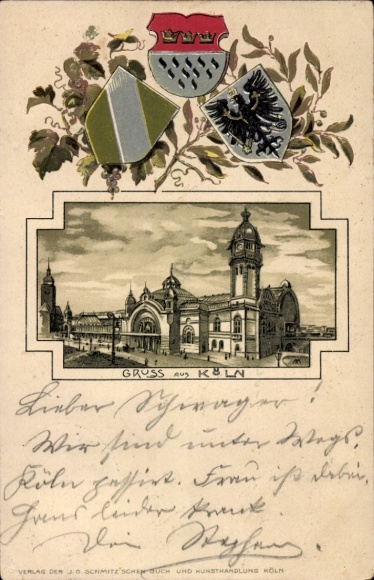 GRUSS AUS KÖLN
Lieber Schwager!
Wir sind unter Wegs,
Köln passirt. Frau ist dabei,
Hans leider krank.
Dein Stephan
VERLAG DER J. G. SCHMITZ'SCHEN BUCH UND KUNSTHANDLUNG KÖLN